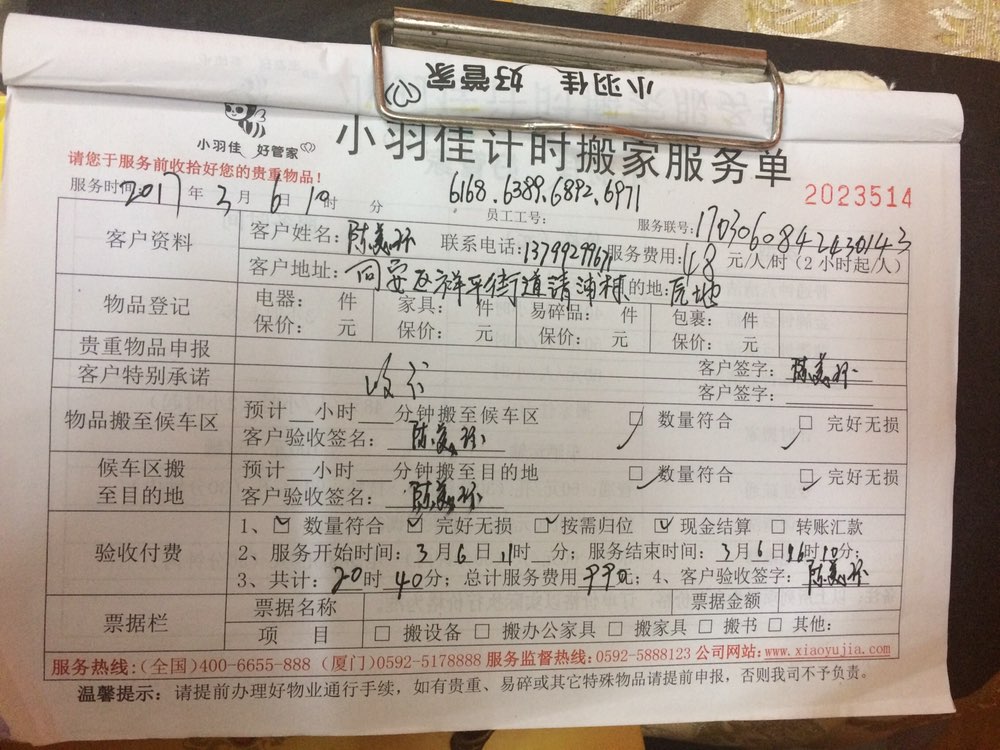 小羽佳 好管家
小羽佳 好管家
小羽佳计时搬家服务单
请您于服务前收拾好您的贵重物品！
2023514
服务时间: 2017 年 3 月 6 日 10 时 分
6168.6389.6892.6971
员工工号:
服务联号: 1703060842430143
客户资料
客户姓名: 陈美
联系电话:
服务费用: 48 元/人/时（2 小时起/人）
客户地址: 同安区祥平街道清浦
的地:
物品登记
电器: 件 家具: 件 易碎品: 件 包裹: 件
保价: 元 保价: 元 保价: 元 保价: 元
贵重物品申报
客户签字: 陈美
客户特别承诺
客户签字:
物品搬至候车区
预计 小时 分钟搬至候车区 □ 数量符合 □ 完好无损
客户验收签名: 陈美
候车区搬
至目的地
预计 小时 分钟搬至目的地 □ 数量符合 □ 完好无损
客户验收签名: 陈美
验收付费
1、☑ 数量符合 ☑ 完好无损 ☑ 按需归位 ☑ 现金结算 □ 转账汇款
2、服务开始时间: 3 月 6 日 11 时 分; 服务结束时间: 3 月 6 日 16 时 10 分;
3、共计: 20 时 40 分; 总计服务费用 990元; 4、客户验收签字: 陈美
票据栏
票据名称 票据金额
项 目 □ 搬设备 □ 搬办公家具 □ 搬家具 □ 搬书 □ 其他:
服务热线: (全国)400-6655-888 (厦门)0592-5178888 服务监督热线: 0592-5888123 公司网站: www.xiaoyujia.com
温馨提示: 请提前办理好物业通行手续，如有贵重、易碎或其它特殊物品请提前申报，否则我司不予负责。